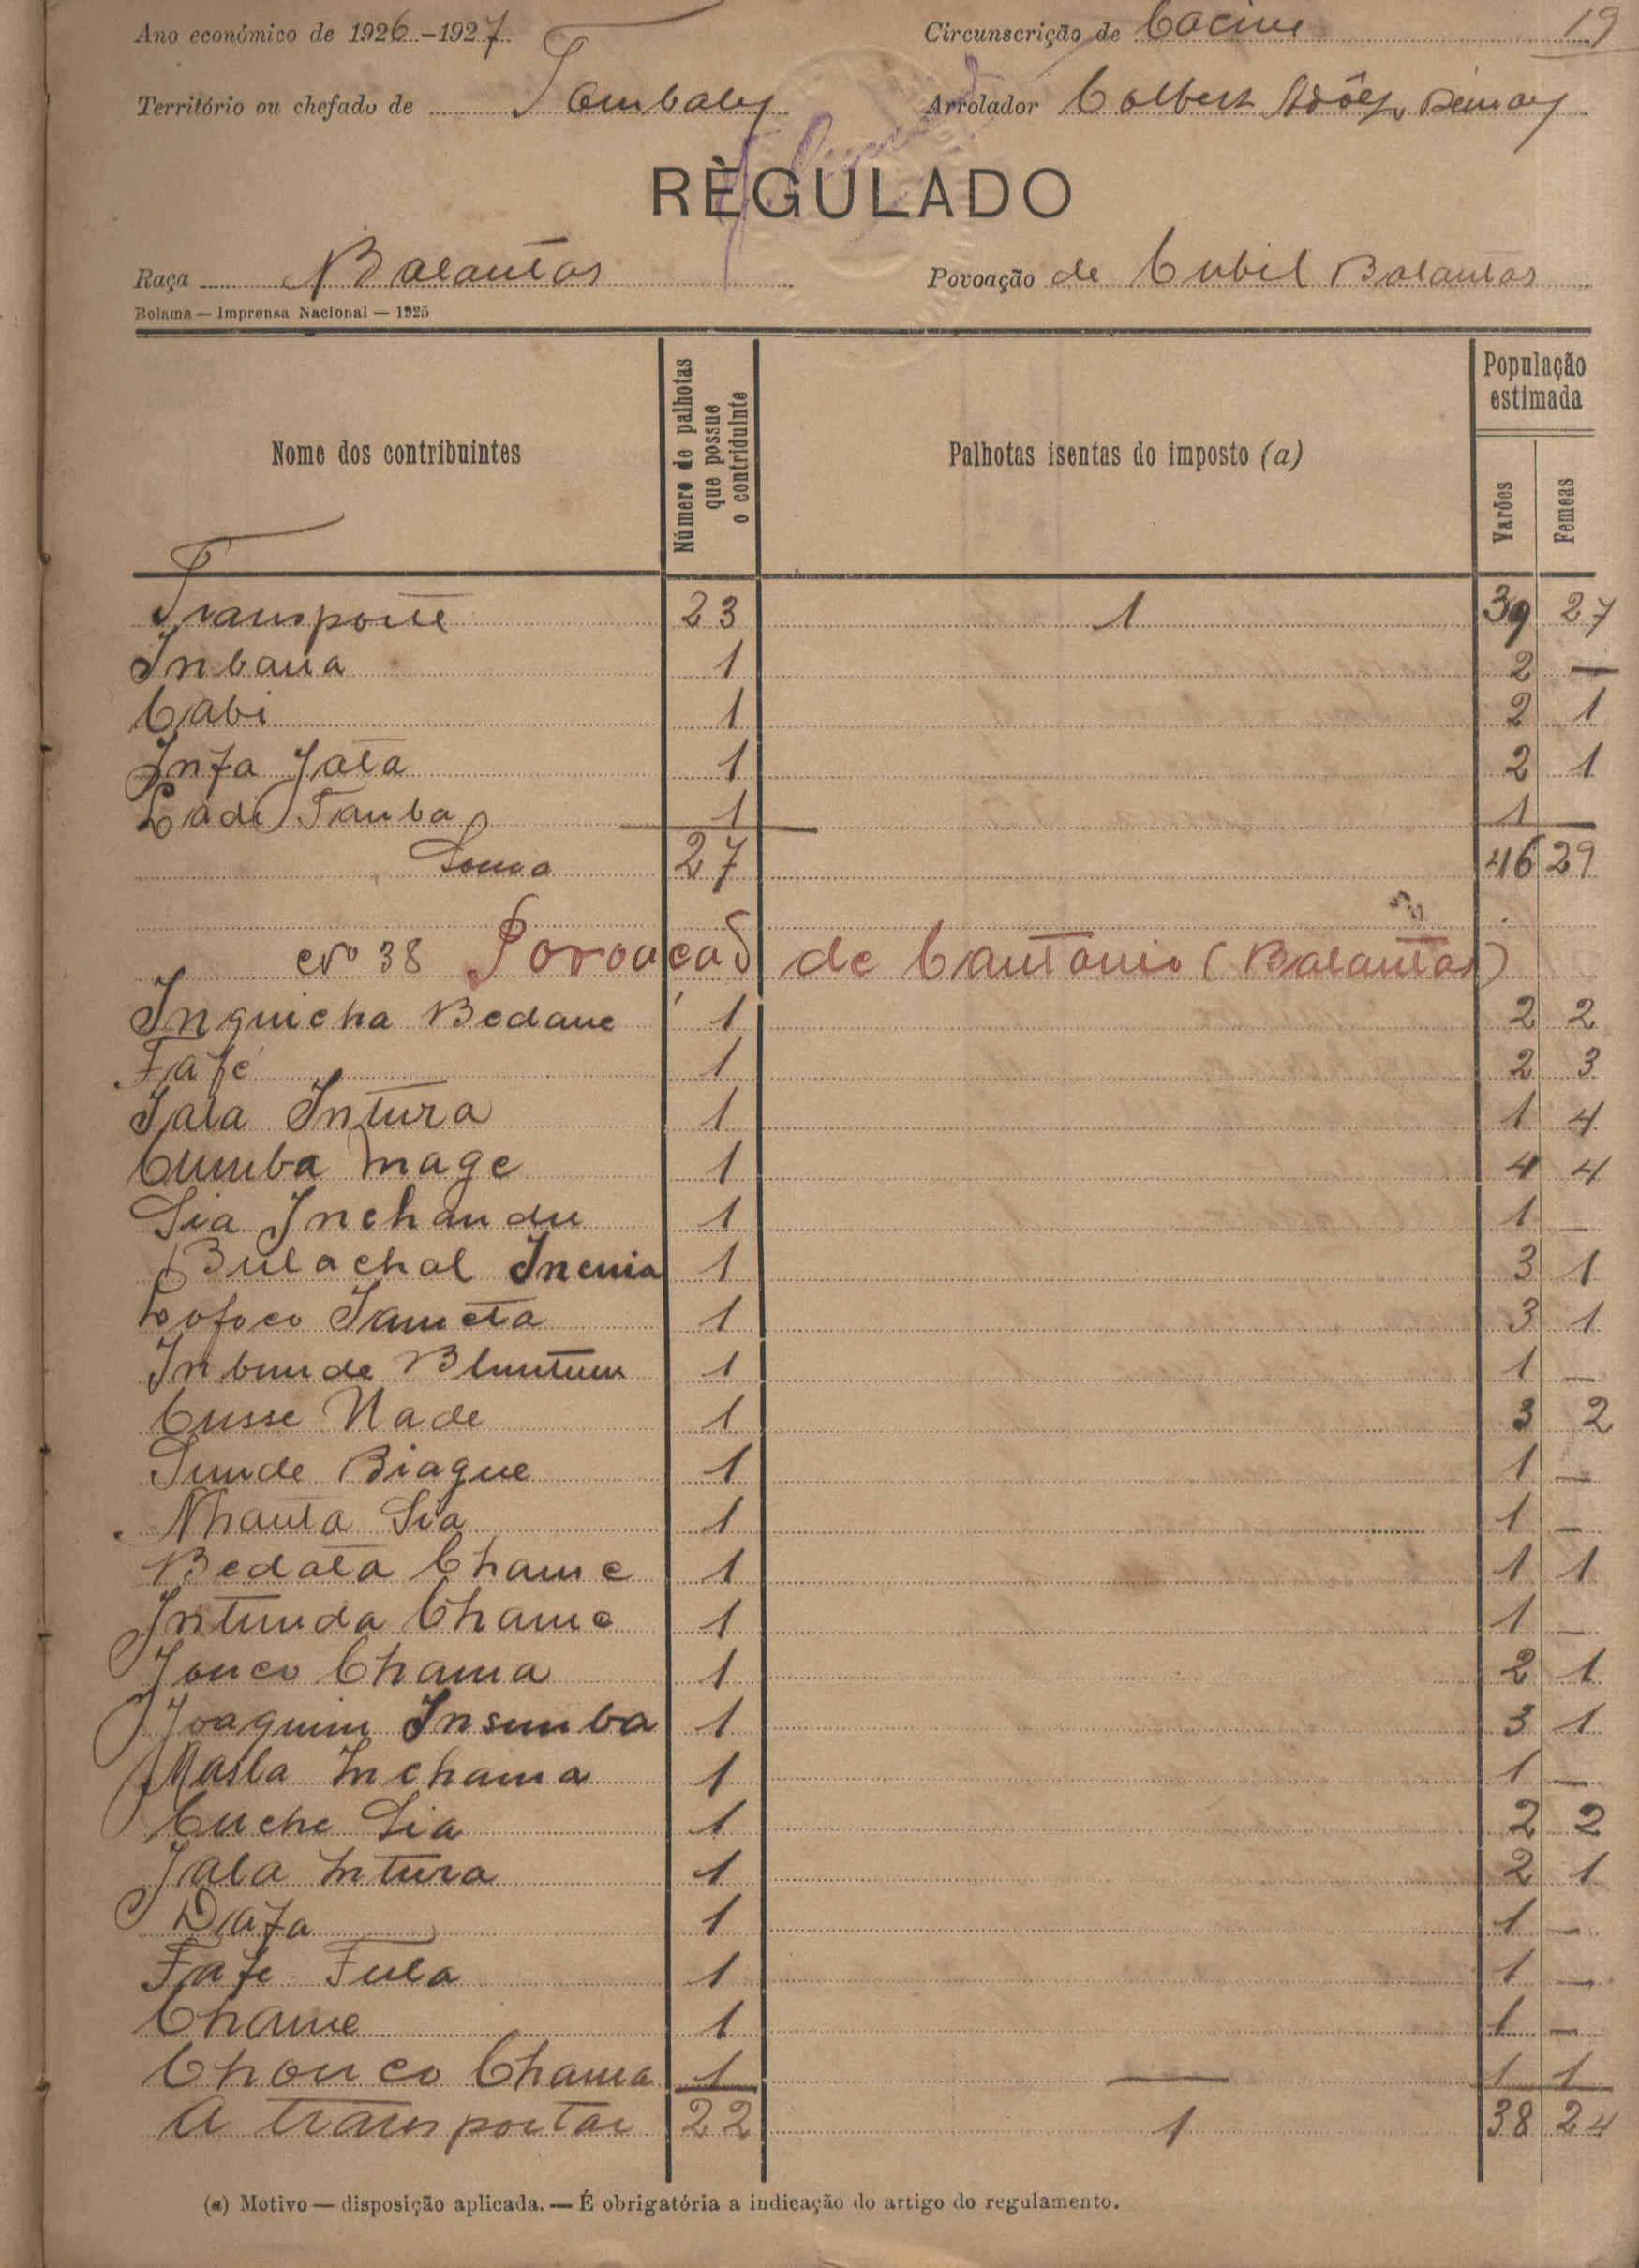 19
Ano económico de 1926-1927 Circunscrição de Cacine
Território ou chefado de Tombaly Arrolador Colbert Adôlfo Démay
RÈGULADO
Raça Balantas Povoação de Cubil Balantas
Bolama — Imprensa Nacional — 1925
Nome dos contribuintes Número de palhotas que possue o contriduinte Palhotas isentas do imposto (a) População estimada Varões Femeas
Transporte 23 1 39 27
Inbana 1 2 —
Cabi 1 2 1
Infa Jata 1 2 1
Ladi Tamba 1 1 —
Soma 27 46 29
Nº 38 Povoação de Cantonio (Balantas)
Inquicha Bedane 1 2 2
Fafé 1 2 3
Jala Intura 1 1 4
Cumba Mage 1 4 4
Sia Inchandu 1 1 —
Bulachol Incuia 1 3 1
Lofoco Tameta 1 3 1
Inbunde Bluntum 1 1 —
Cusse Nade 1 3 2
Sunde Biague 1 1 —
Nhanta Sia 1 1 —
Bedata Chame 1 1 1
Intunda Chame 1 1 —
Jouco Chama 1 2 1
Joaquim Insumba 1 3 1
Masla Inchama 1 1 —
Cuche Sia 1 2 2
Jala Intura 1 2 1
Dafa 1 1 —
Fafe Fula 1 1 —
Chame 1 1 —
Chouco Chama 1 — 1 1
A transportar 22 1 38 24
(a) Motivo — disposição aplicada. — É obrigatória a indicação do artigo do regulamento.